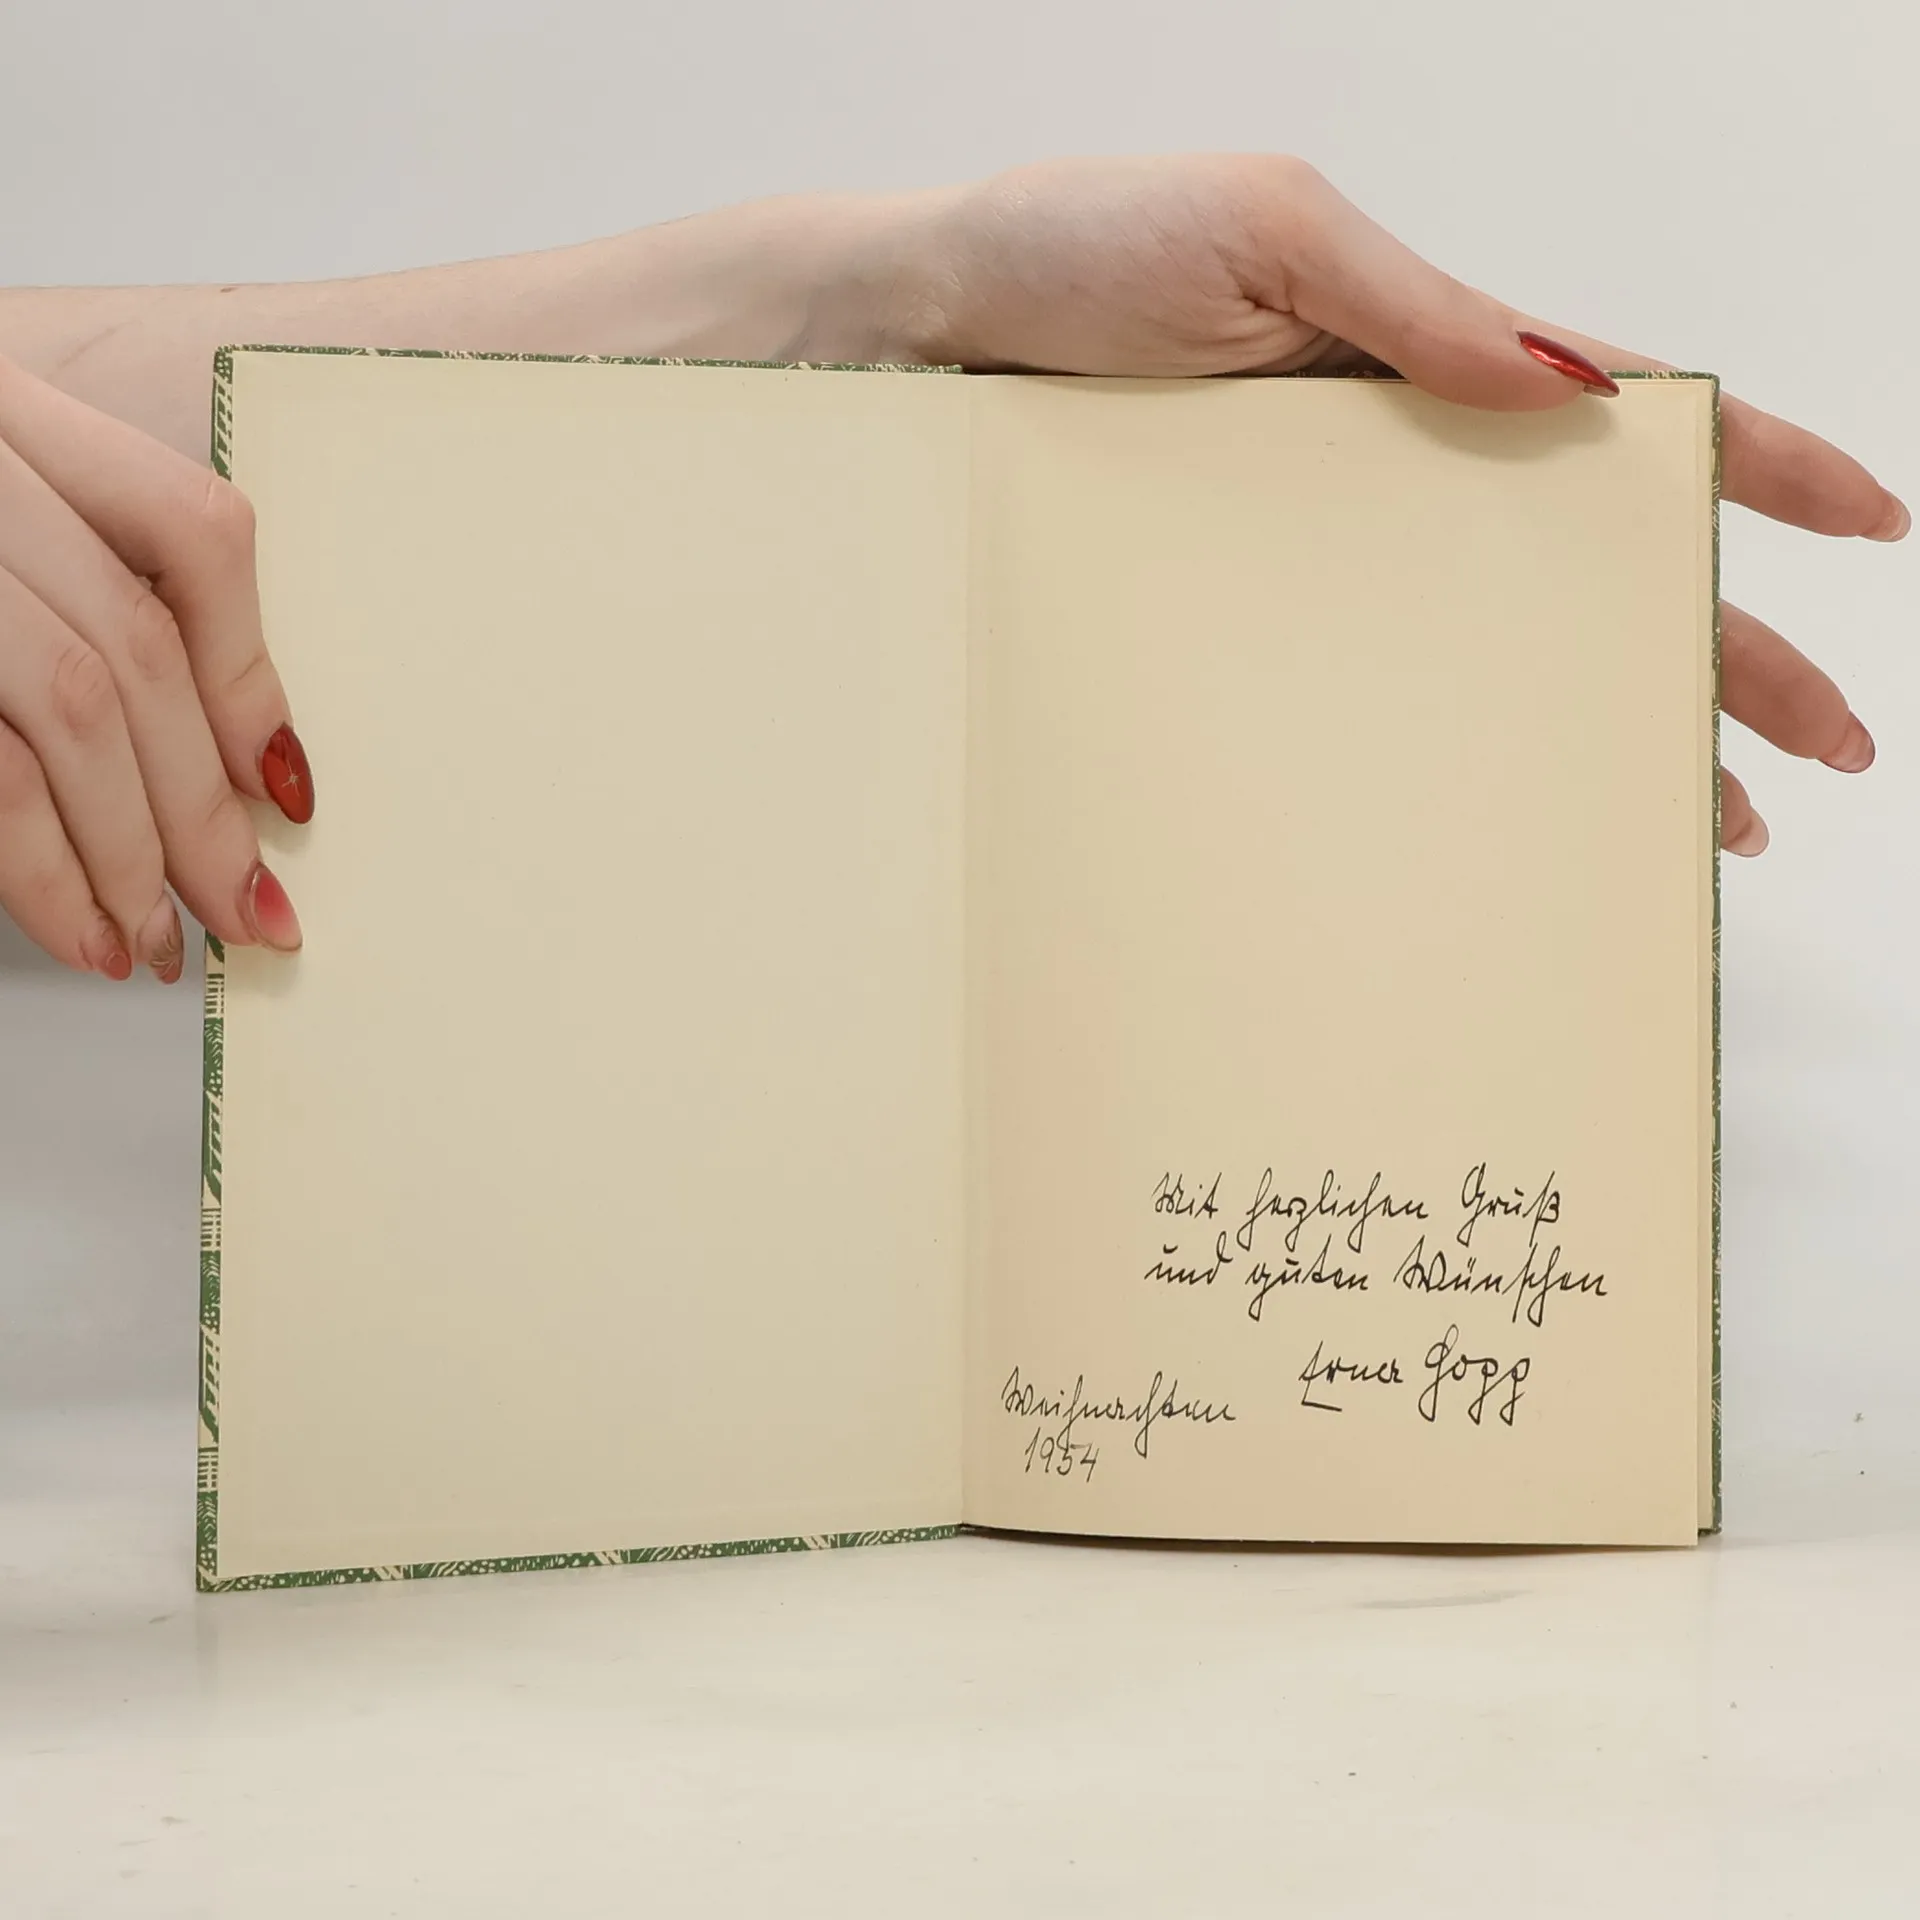 Mit herzlichen Gruß
und guten Wünschen
Erna Hopp
Weihnachten
1954